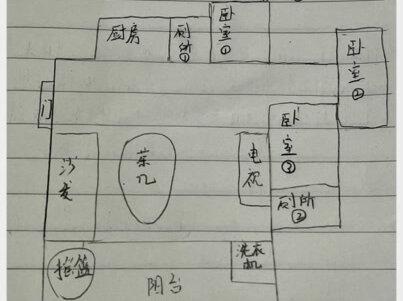 厨房
厕所①
卧室①
卧室②
门
沙发
茶几
电视
卧室③
厕所②
摇篮
洗衣机
阳台